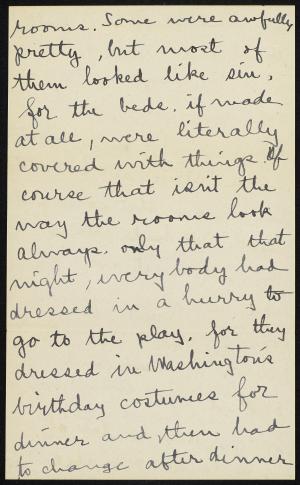 rooms. Some were awfully
pretty, but most of
them looked like sin,
for the beds, if made
at all, were literally
covered with things. Of
course that isn't the
way the rooms look
always. only that that
night, every body had
dressed in a hurry to
go to the play, for they
dressed in Washington's
birthday costumes for
dinner and, then had
to change after dinner